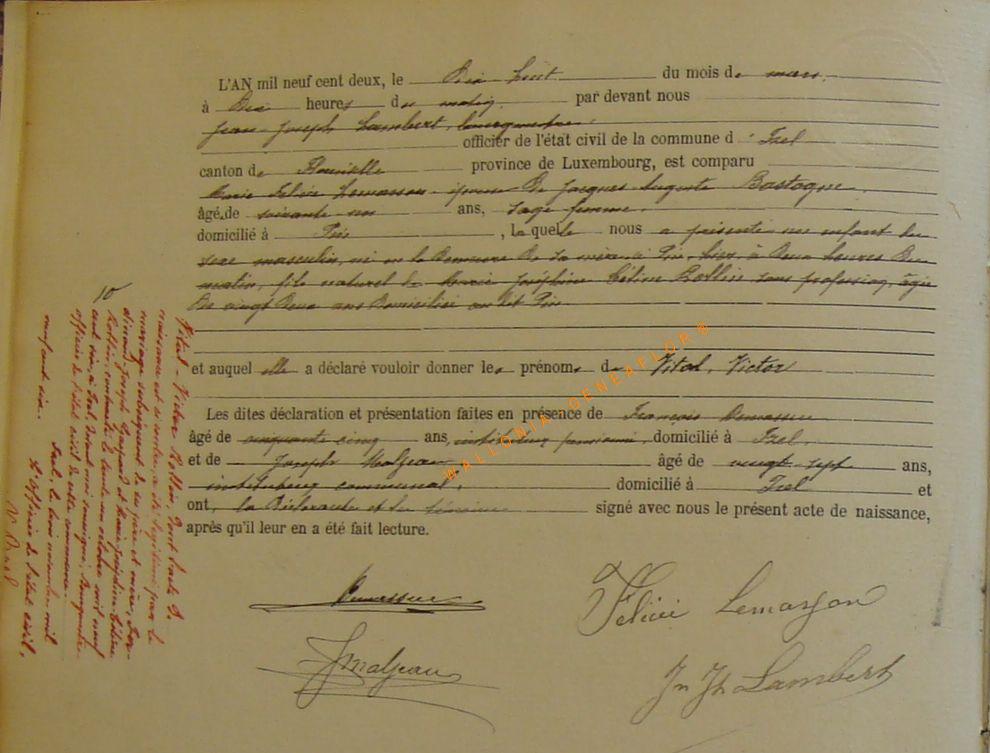 L'AN mil neuf cent deux, le Dix huit du mois de mars
à Dix heures du matin, par devant nous
Jean Joseph Lambert, bourgmestre,
officier de l'état civil de la commune d'Izel
canton de Florenville province de Luxembourg, est comparu
Marie Félicie Lemasson épouse de Jacques Auguste Bastogne,
âgé de soixante un ans, sage femme,
domicilié à Pin, laquelle nous a présenté un enfant du
sexe masculin, né en la demeure de sa mère à Pin, hier, à Deux heures Du
matin, fils naturel de Marie Joséphine Céline Rollin sans profession, âgée
De vingt Deux ans Domiciliée au dit Pin
et auquel elle a déclaré vouloir donner les prénoms de Vital, Victor
Les dites déclaration et présentation faites en présence de François
âgé de cinquante cinq ans, instituteur pensionné, domicilié à Izel,
et de Joseph Maljean âgé de vingt-sept ans,
instituteur communal, domicilié à Izel et
ont, la Déclarante et les témoins signé avec nous le présent acte de naissance,
après qu'il leur en a été fait lecture.
Félicie Lemasson
JMaljean
Jn Jh Lambert
10
Vital-Victor Rollin, dont l'acte de
naissance est ci contre, a été légitimé par le
mariage subséquent de ses père et mère,
Joseph et Marie Joséphine Céline
Rollin, contracté le trente un octobre mil neuf
cent six, à Izel, devant moi soussigné, Bourgmestre
officier de l'état civil de cette commune.
Izel, le trois novembre mil
neuf cent six.
L'officier de l'état civil,
WALLONIA GENEAFLOR©